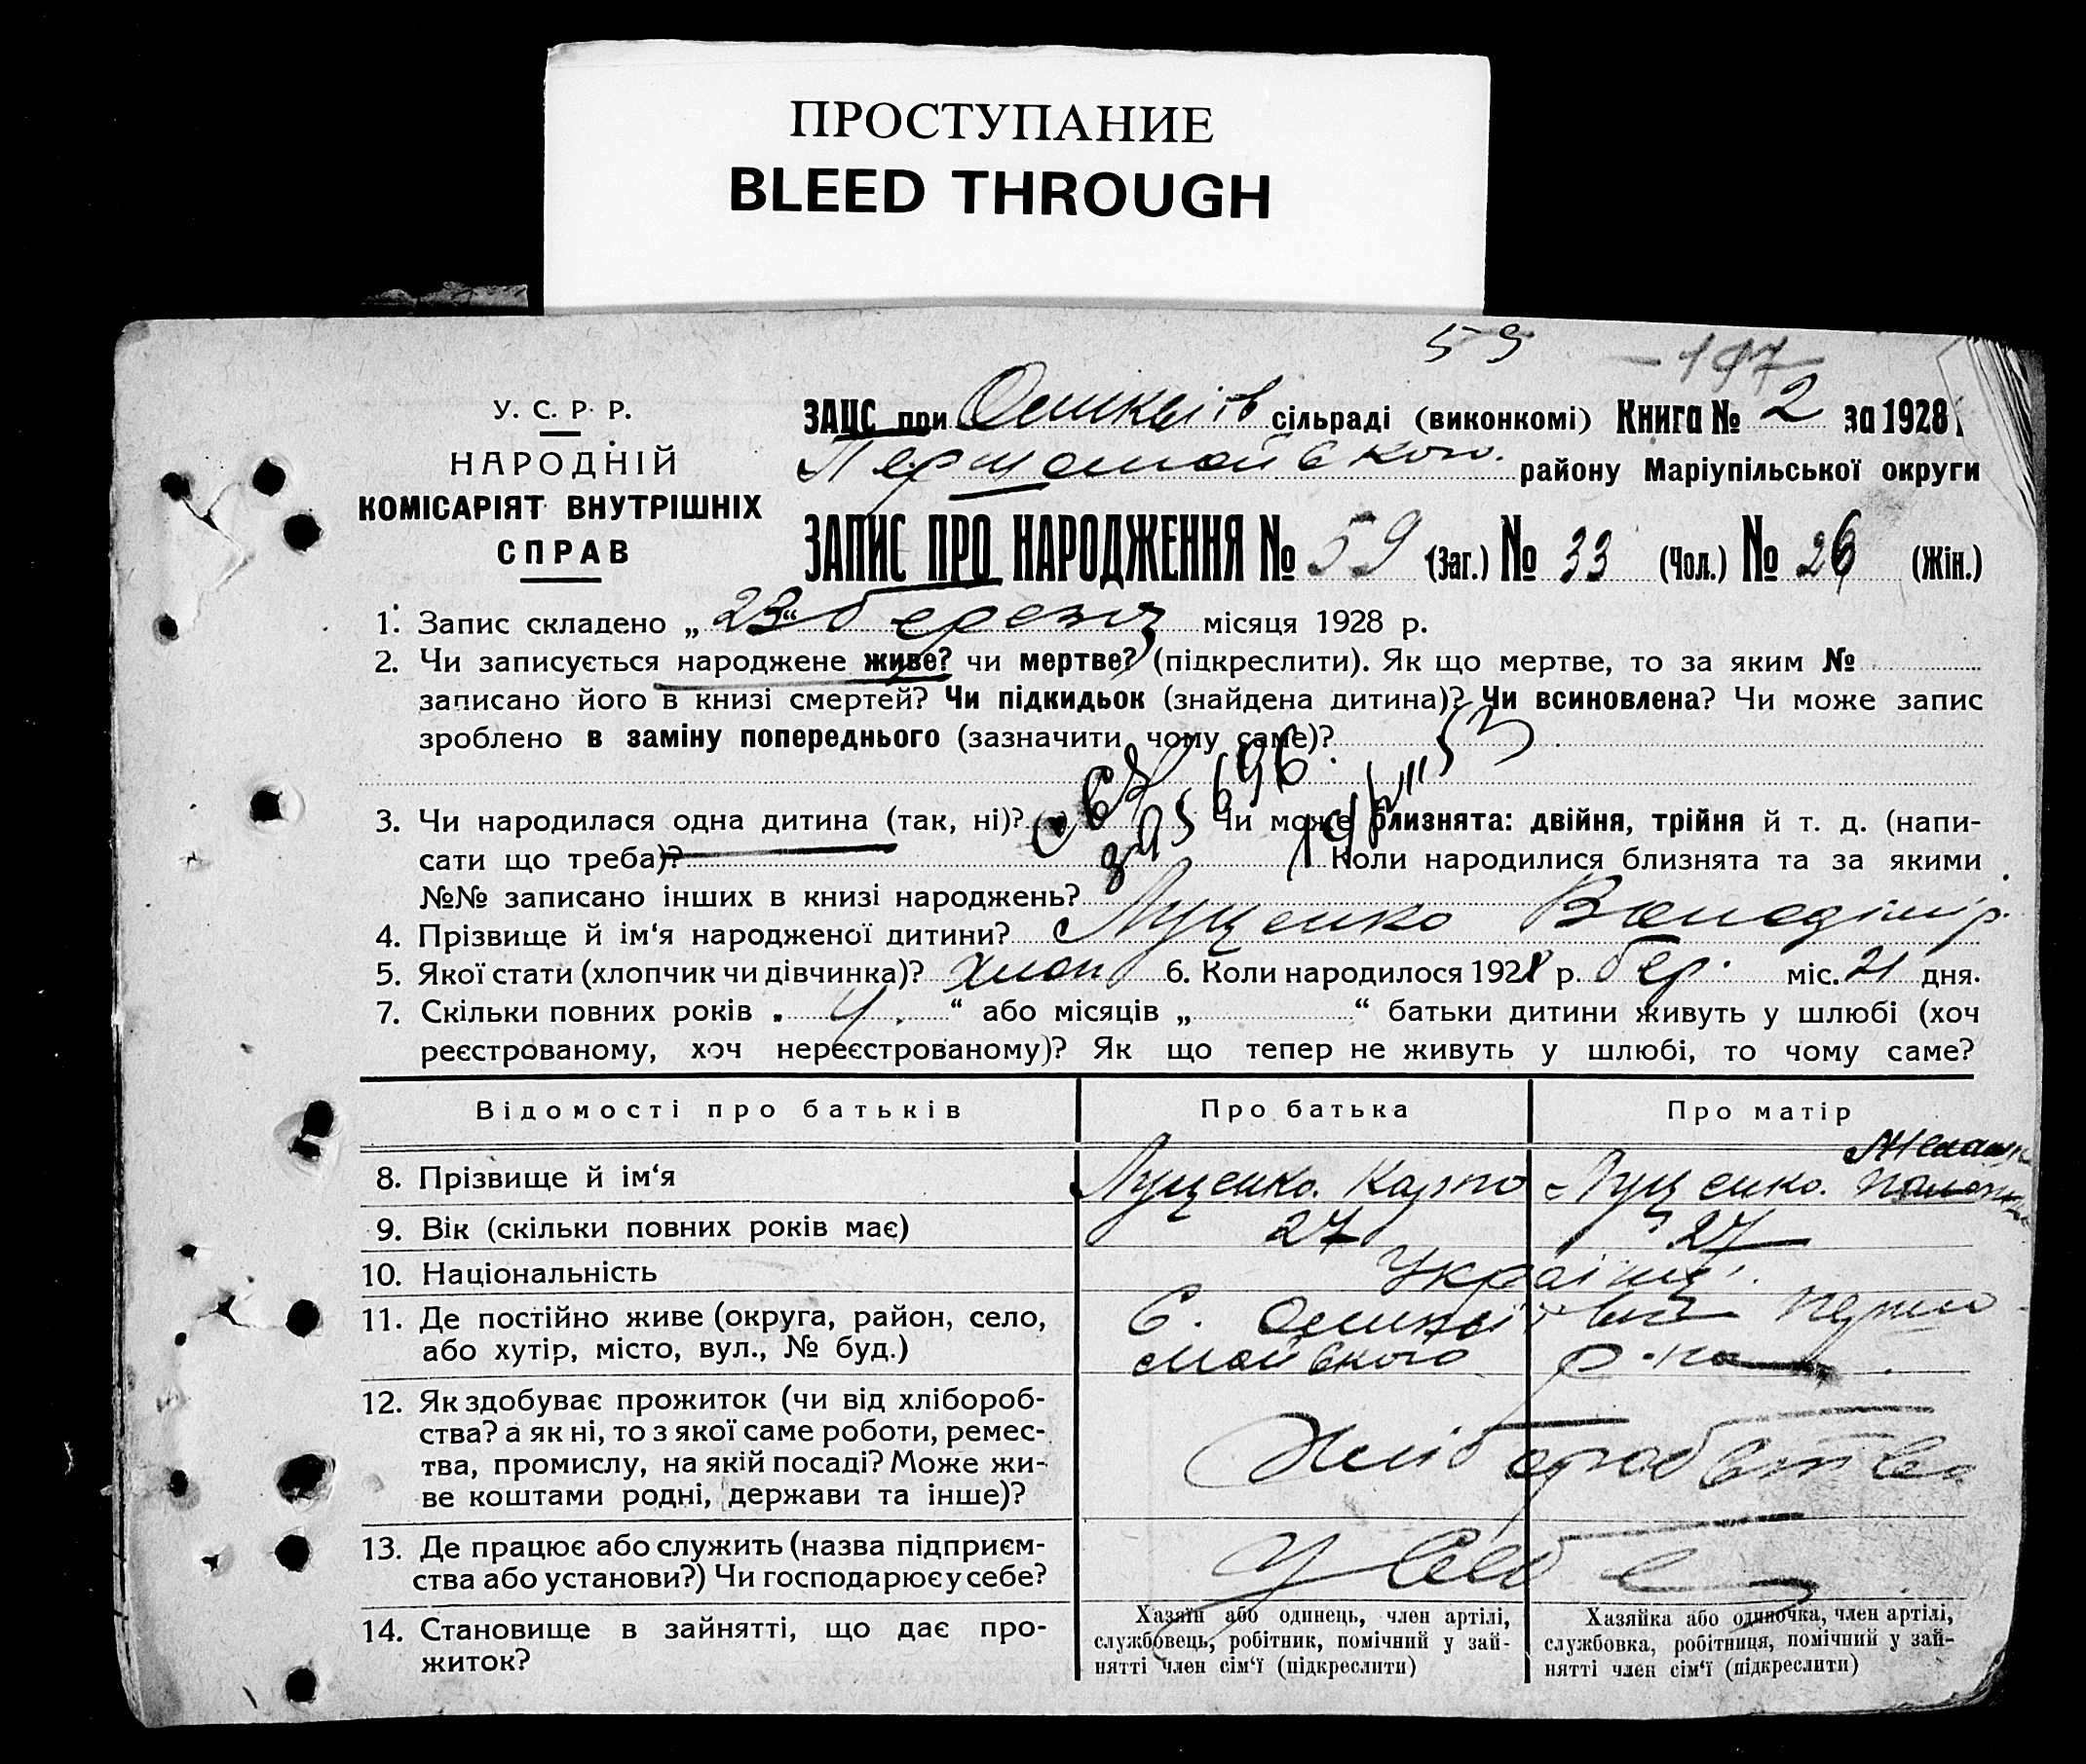 ПРОСТУПАНИЕ
BLEED THROUGH
59
-197
У. С. Р. Р.
НАРОДНІЙ
КОМІСАРІЯТ ВНУТРІШНІХ
СПРАВ
ЗАЦС при сільраді (виконкомі) Книга № 2 за 1928
Першомайського району Маріупільської округи
ЗАПИС ПРО НАРОДЖЕННЯ № 59 (Заг.) № 33 (Чол.) № 26 (Жін.)
1. Запис складено „23“ березня місяця 1928 р.
2. Чи записується народжене живе? чи мертве? (підкреслити). Як що мертве, то за яким №
записано його в книзі смертей? Чи підкидьок (знайдена дитина)? Чи всиновлена? Чи може запис
зроблено в заміну попереднього (зазначити чому саме)?
3. Чи народилася одна дитина (так, ні)? Чи може близнята: двійня, трійня й т. д. (напи-
сати що треба)? Коли народилися близнята та за якими
№№ записано інших в книзі народжень?
4. Прізвище й ім‘я народженої дитини? Луценко Володімір
5. Якої стати (хлопчик чи дівчинка)? хлоп 6. Коли народилося 1928 р. бер. міс. 21 дня.
7. Скільки повних років „ 4. “ або місяців „ “ батьки дитини живуть у шлюбі (хоч
реєстрованому, хоч нереєстрованому)? Як що тепер не живуть у шлюбі, то чому саме?
Відомості про батьків Про батька Про матір
8. Прізвище й ім‘я Луценко. Карпо Луценко.
9. Вік (скільки повних років має) 27 27
10. Національність Україн.
11. Де постійно живе (округа, район, село, С. Першо-
або хутір, місто, вул., № буд.) майського р-на
12. Як здобуває прожиток (чи від хлібороб-
ства? а як ні, то з якої саме роботи, ремес-
тва, промислу, на якій посаді? Може жи-
ве коштами родні, держави та інше)? Хліборобство
13. Де працює або служить (назва підприєм-
ства або установи?) Чи господарює у себе? У себе
14. Становище в зайнятті, що дає про-
житок?
Хазяїн або одинець, член артілі,
службовець, робітник, помічний у зай-
нятті член сім‘ї (підкреслити)
Хазяйка або одиночка, член артілі,
службовка, робітниця, помічний у зай-
нятті член сім‘ї (підкреслити)